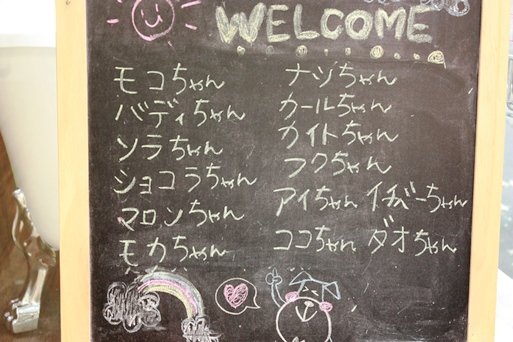 WELCOME
モコちゃん
バディちゃん
ソラちゃん
ショコラちゃん
マロンちゃん
モカちゃん
ナツちゃん
カールちゃん
カイトちゃん
フクちゃん
アイちゃん イチバーちゃん
ココちゃん ダオちゃん